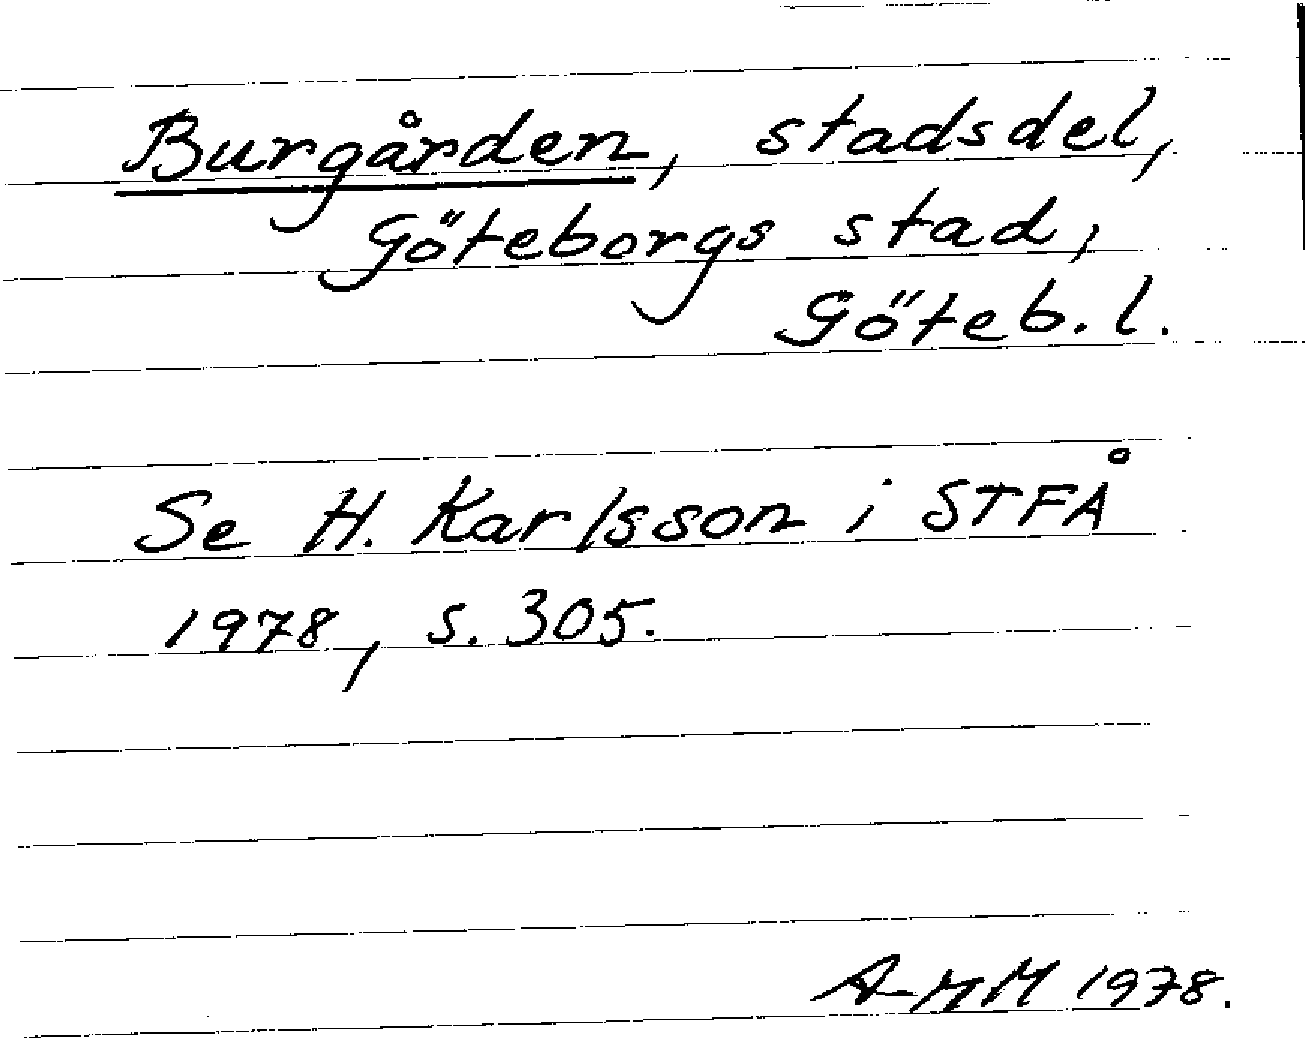 Burgården, stadsdel,
Göteborgs stad,
Göteb. l.
Se H. Karlsson i STFÅ
1978, s. 305.
A-MM 1978.